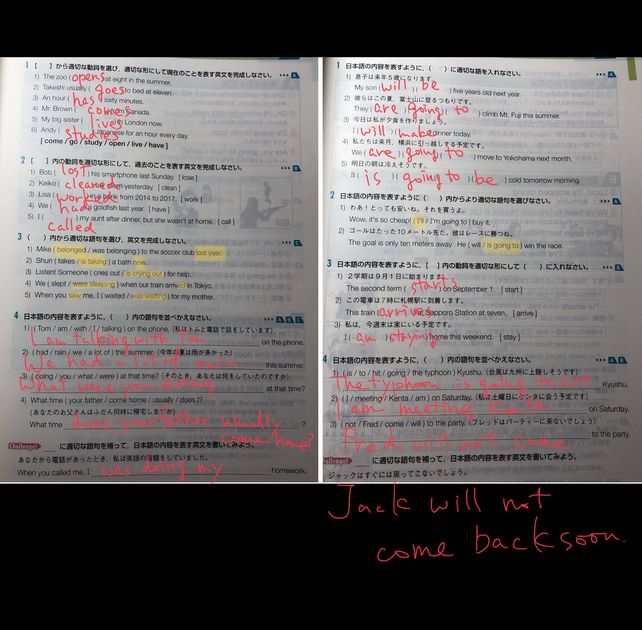 1 [ ]から適切な動詞を選び、適切な形にして現在のことを表す英文を完成しなさい。 A
1) The zoo ( opens at eight in the summer.
2) Takeshi usually ( goes to bed at eleven.
3) An hour ( has sixty minutes.
4) Mr. Brown ( comes Canada.
5) My big sister ( lives London now.
6) Andy ( studies Japanese for an hour every day.
[ come / go / study / open / live / have ]
2 [ ]内の動詞を適切な形にして、過去のことを表す英文を完成しなさい。 B
1) Bob ( lost ) his smartphone last Sunday. [ lose ]
2) Keiko ( cleaned yesterday. [ clean ]
3) Lisa ( worked from 2014 to 2017. [ work ]
4) We ( had goldfish last year. [ have ]
5) I ( ) my aunt after dinner, but she wasn't at home. [ call ]
called
3 ( )内から適切な語句を選び、英文を完成しなさい。 C
1) Mike ( belonged / was belonging ) to the soccer club last year.
2) Shun ( takes / is taking ) a bath now.
3) Listen! Someone ( cries out / is crying out ) for help.
4) We ( slept / were sleeping ) when our train arrived in Tokyo.
5) When you saw me, I ( waited / was waiting ) for my mother.
4 日本語の内容を表すように、( )内の語句を並べかえなさい。 A B C
1) ( Tom / am / with / I / talking ) on the phone. (私はトムと電話で話をしています)
I am talking with Tom on the phone.
2) ( had / rain / we / a lot of ) this summer. (今年の夏は雨が多かった)
We had a lot of rain this summer.
3) ( doing / you / what / were ) at that time? (そのとき、あなたは何をしていたのですか)
What were you doing at that time?
4) What time ( your father / come home / usually / does )?
(あなたのお父さんはふだん何時に帰宅しますか)
What time does your father usually come home?
Challenge! に適切な語句を補って、日本語の内容を表す英文を書いてみよう。
あなたから電話があったとき、私は英語の宿題をしていました。
When you called me, I was doing my homework.
1 日本語の内容を表すように、( )に適切な語を入れなさい。 A
1) 息子は来年5歳になります。
My son ( will )( be ) five years old next year.
2) 彼らはこの夏、富士山に登るつもりです。
They ( are )( going )( to ) climb Mt. Fuji this summer.
3) 今日は私が夕食を作りましょう。
I ( will )( make dinner today.
4) 私たちは来月、横浜に引っ越しする予定です。
We ( are )( going )( to ) move to Yokohama next month.
5) 明日の朝は冷えそうです。
It ( is )( going )( to )( be ) cold tomorrow morning.
2 日本語の内容を表すように、( )内より適切な語句を選びなさい。 A
1) わあ！とっても安いね。それを買うよ。
Wow, it's so cheap! ( I'll / I'm going to ) buy it.
2) ゴールはたった10メートル先だ。彼はレースに勝つな。
The goal is only ten meters away. He ( will / is going to ) win the race.
3 日本語の内容を表すように、[ ]内の動詞を適切な形にして( )に入れなさい。 B
1) 2学期は9月1日に始まります。
The second term ( starts on September 1. [ start ]
2) この電車は7時に札幌駅に到着します。
This train ( arrives Sapporo Station at seven. [ arrive ]
3) 私は、今週末は家にいる予定です。
I am staying home this weekend. [ stay ]
4 日本語の内容を表すように、( )内の語句を並べかえなさい。 A B
1) ( is / to / hit / going / the typhoon ) Kyushu. (台風は九州に上陸しそうです)
The typhoon is going to hit Kyushu.
2) ( I / meeting / Kenta / am ) on Saturday. (私は土曜日にケンタに会う予定です)
I am meeting Kenta on Saturday.
3) ( not / Fred / come / will ) to the party. (フレッドはパーティーに来ないでしょう)
Fred will not come to the party.
Challenge! に適切な語句を補って、日本語の内容を表す英文を書いてみよう。
ジャックはすぐには戻ってこないでしょう。
Jack will not
come back soon.